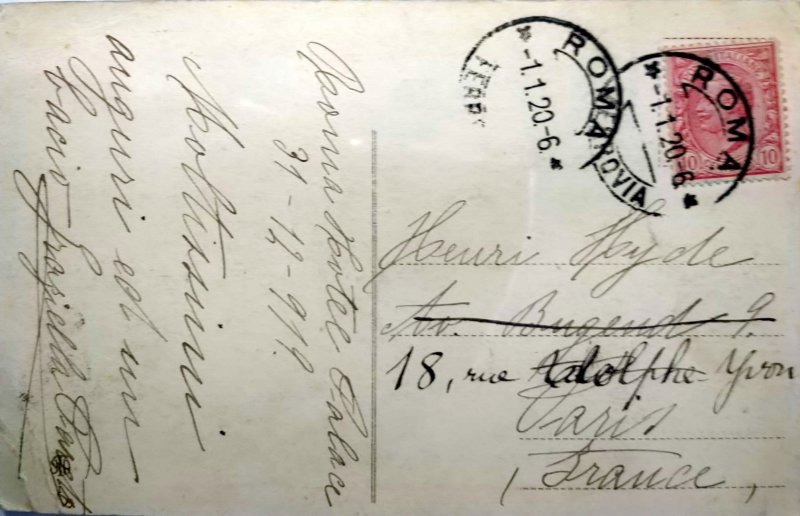 Roma Hotel Palace
31-12-919
Moltissimi
auguri ed un
bacio Grasiella
ROMA
-1.1.20-6
FERROVIA
ROMA
-1.1.20-6
10 10
Henri Hyde
Av. Bugeaud 9.
18, rue Adolphe Yvon
Paris
France,